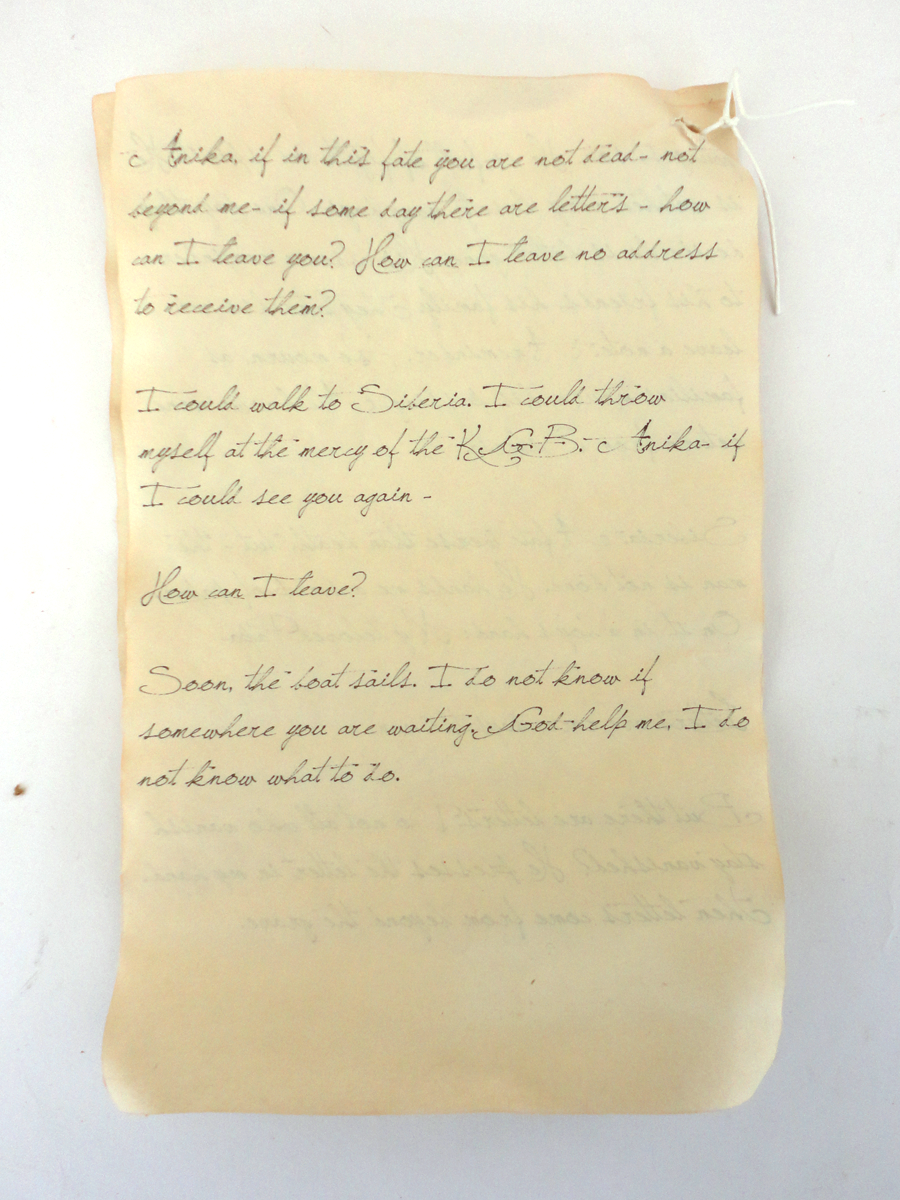 Anika, if in this fate you are not dead- not
beyond me- if some day there are letters - how
can I leave you? How can I leave no address
to receive them?
I could walk to Siberia. I could throw
myself at the mercy of the KGB. Anika- if
I could see you again -
How can I leave?
Soon, the boat sails. I do not know if
somewhere you are waiting. God help me, I do
not know what to do.